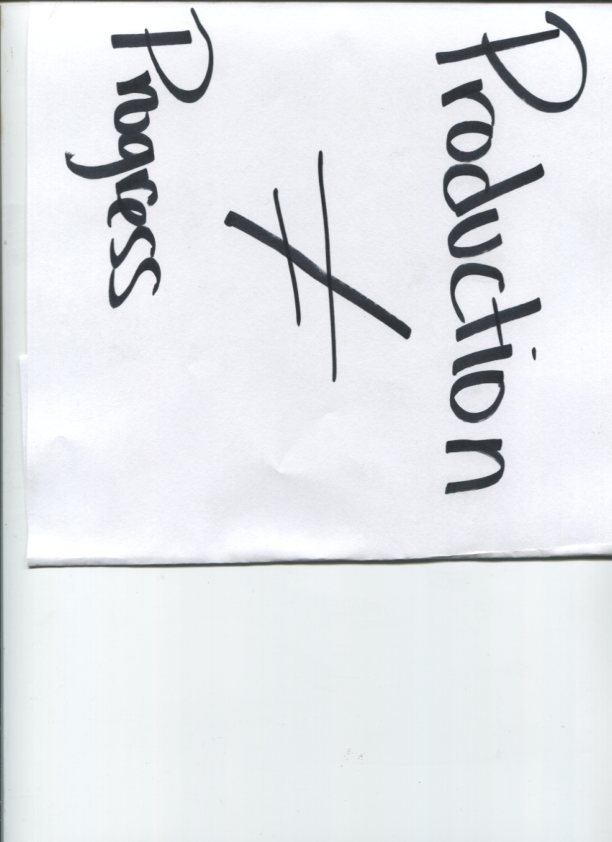 Production
≠
Progress